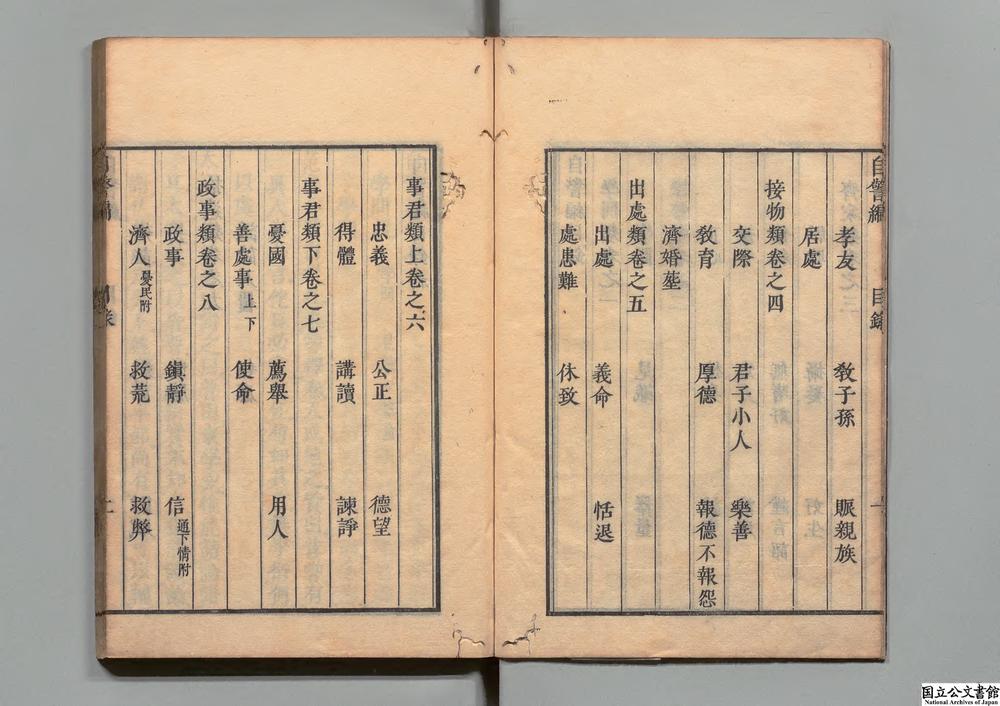 自警編 目錄 一
孝友 教子孫 賑親族
居處
接物類卷之四
交際 君子小人 樂善
教育 厚德 報德不報怨
濟婚塟
出處類卷之五
出處 義命 恬退
處患難 休致
事君類上卷之六
忠義 公正 德望
得體 講讀 諫諍
事君類下卷之七
憂國 薦舉 用人
善處事上下 使命
政事類卷之八
政事 鎭靜 信通下情附
濟人憂民附 救荒 救弊
国立公文書館
National Archives of Japan